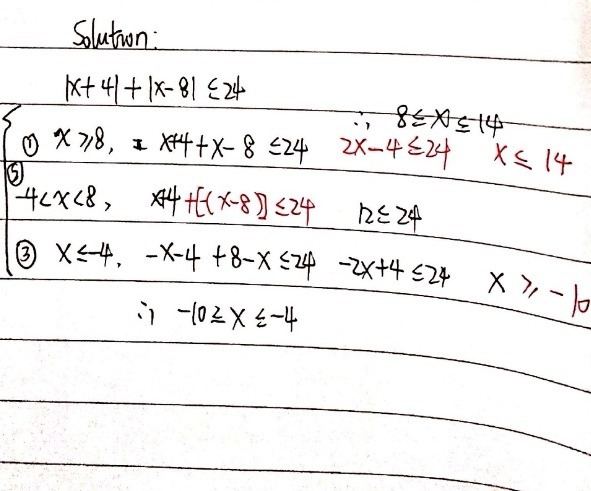 Solution:
|x+4|+|x-8| ≤24
∴ 8≤x≤14
① x≥8, x+4+x-8 ≤24 2x-4≤24 x≤14
② -4<x<8, x+4+[-(x-8)]≤24 12≤24
③ x≤-4, -x-4+8-x≤24 -2x+4≤24 x≥-10
∴ -10≥x≤-4